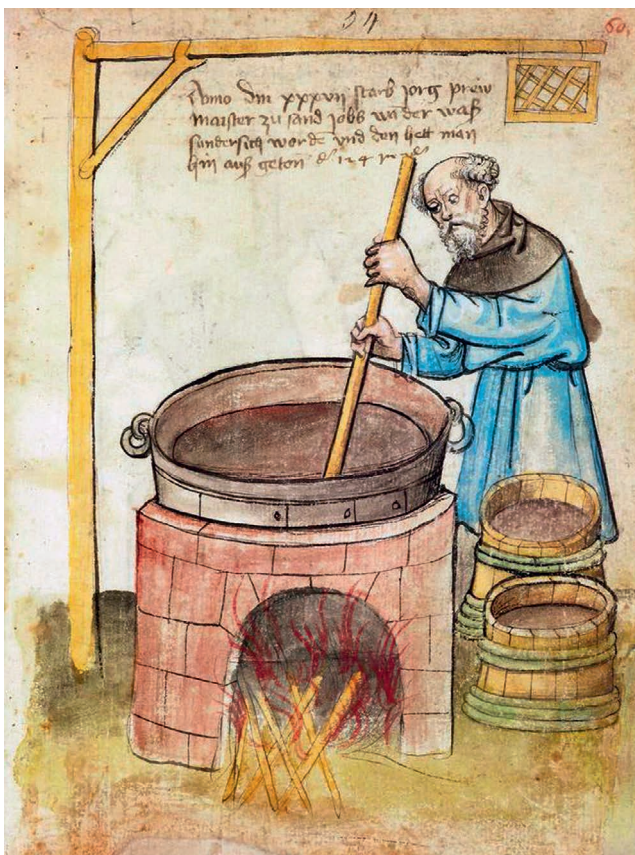 54
60.
Anno dm xxxvii starb jorg prew
maister zu sand jobs wa der was
sundersich worde vnd den hett man
hin auß geton